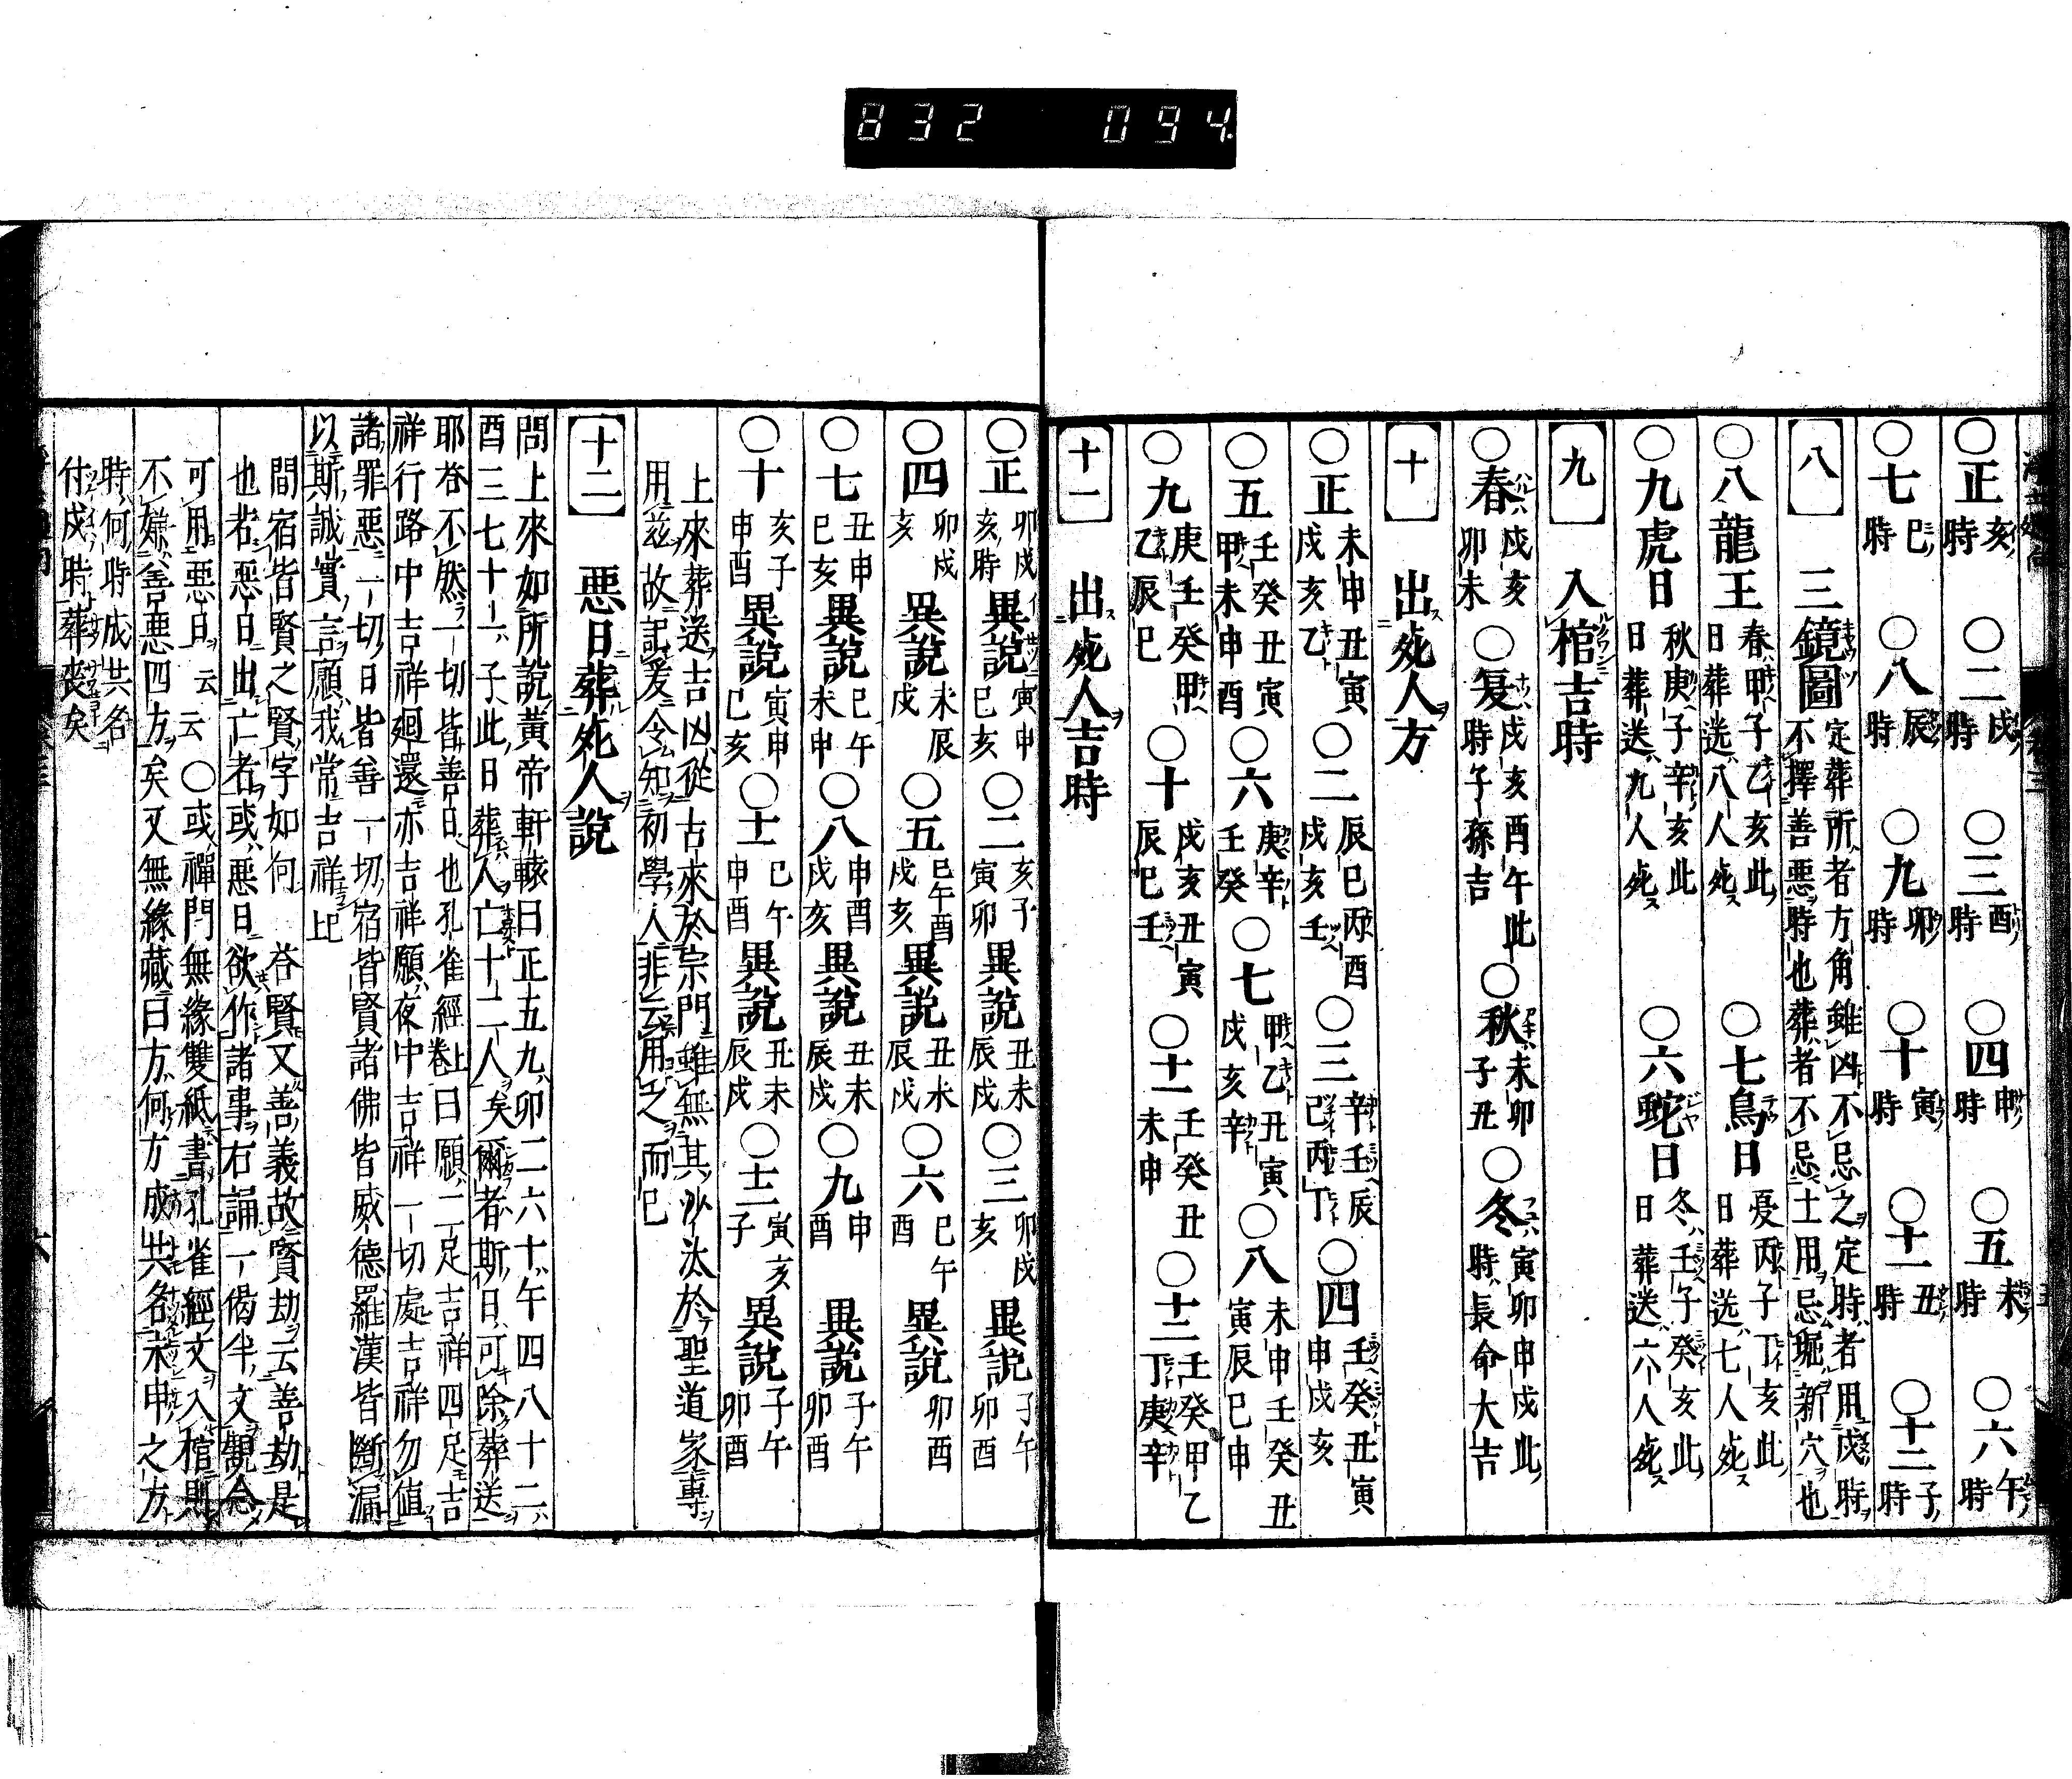 832 094
○正 亥時 ○二 戌時 ○三 酉時 ○四 申時 ○五 未時 ○六 午時
○七 巳時 ○八 辰時 ○九 卯時 ○十 寅時 ○十一 丑時 ○十二 子時
八 三鏡圖 定葬所者方角雖凶不忌之定時者用戌時
不擇善惡時也葬者不忌土用忌堀新穴也
○八龍王 春甲子乙亥此日葬送八人死 ○七鳥日 夏丙子丁亥此日葬送七人死
○九虎日 秋庚子辛亥此日葬送九人死 ○六蛇日 冬壬子癸亥此日葬送六人死
九 入棺吉時
○春 戌亥卯未 ○夏 戌亥酉午此時子孫吉 ○秋 未卯子丑 ○冬 寅卯申戌此時長命大吉
十 出死人方
○正 未申丑寅戌亥乙 ○二 辰巳丙酉戌亥壬 ○三 辛壬辰己丙丁 ○四 壬癸丑寅申戌亥
○五 壬癸丑寅甲未申酉 ○六 庚辛壬癸 ○七 甲乙丑寅戌亥辛 ○八 未申壬癸丑寅辰巳申
○九 庚壬癸甲乙辰巳 ○十 戌亥丑寅辰巳壬 ○十一 壬癸丑未申 ○十二 壬癸甲乙丁庚辛
十一 出死人吉時
○正 卯戌亥時 異說 寅申巳亥 ○二 亥子寅卯 異說 丑未辰戌 ○三 卯戌亥 異說 子午卯酉
○四 卯戌亥 異說 未辰戌 ○五 巳午酉戌亥 異說 丑未辰戌 ○六 巳午酉 異說 卯酉
○七 丑申巳亥 異說 巳午未申 ○八 申酉戌亥 異說 丑未辰戌 ○九 申酉 異說 子午卯酉
○十 亥子申酉 異說 寅申巳亥 ○十一 巳午申酉 異說 丑未辰戌 ○十二 寅亥子 異說 子午卯酉
上來葬送吉凶從古來於宗門雖無其沙汰於聖道家專
用茲故記爰令知初學人非云用之而已
十二 惡日葬死人說
問上來如所說黃帝軒轅曰正五九卯二六十午四八十二
酉三七十一子此日葬人亡十二人矣爾者斯日可除葬送
耶答不然一切皆善日也孔雀經卷上曰願二足吉祥四足吉
祥行路中吉祥廻還亦吉祥願夜中吉祥一切處吉祥勿值
諸罪惡一切日皆善一切宿皆賢諸佛皆威德羅漢皆斷漏
以斯誠實言願我常吉祥上已
間宿皆賢之賢字如何 答賢又善義故賢劫云善劫是
也若惡日出亡者或惡日欲作諸事右誦一偈半文觀念
可用惡日云云 ○或禪門無緣雙紙書孔雀經文入棺則
不嫌善惡四方矣又無緣藏曰方何方成共名未申之方
時何時成共名
付戌時葬喪矣